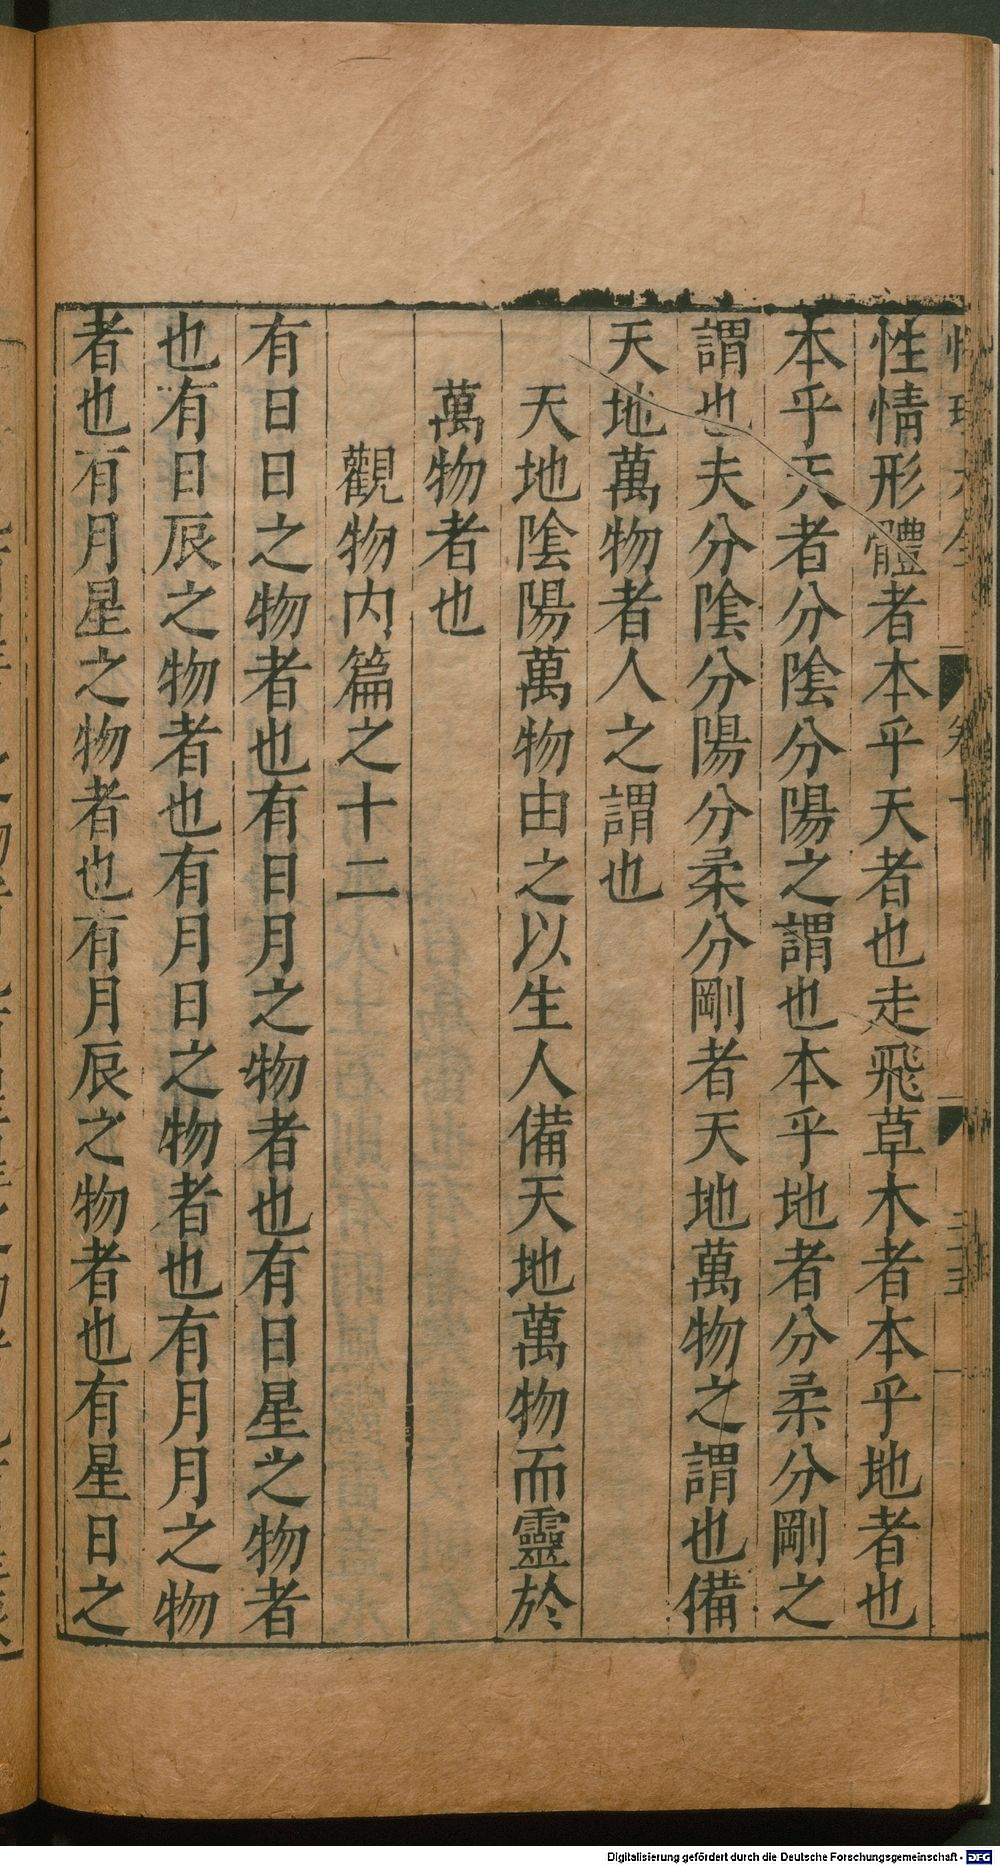 性情形體者本乎天者也走飛草木者本乎地者也
本乎天者分陰分陽之謂也本乎地者分柔分剛之
謂也夫分陰分陽分柔分剛者天地萬物之謂也備
天地萬物者人之謂也
天地陰陽萬物由之以生人備天地萬物而靈於
萬物者也
觀物内篇之十二
有日日之物者也有日月之物者也有日星之物者
也有日辰之物者也有月日之物者也有月月之物
者也有月星之物者也有月辰之物者也有星日之
Digitalisierung gefördert durch die Deutsche Forschungsgemeinschaft - DFG